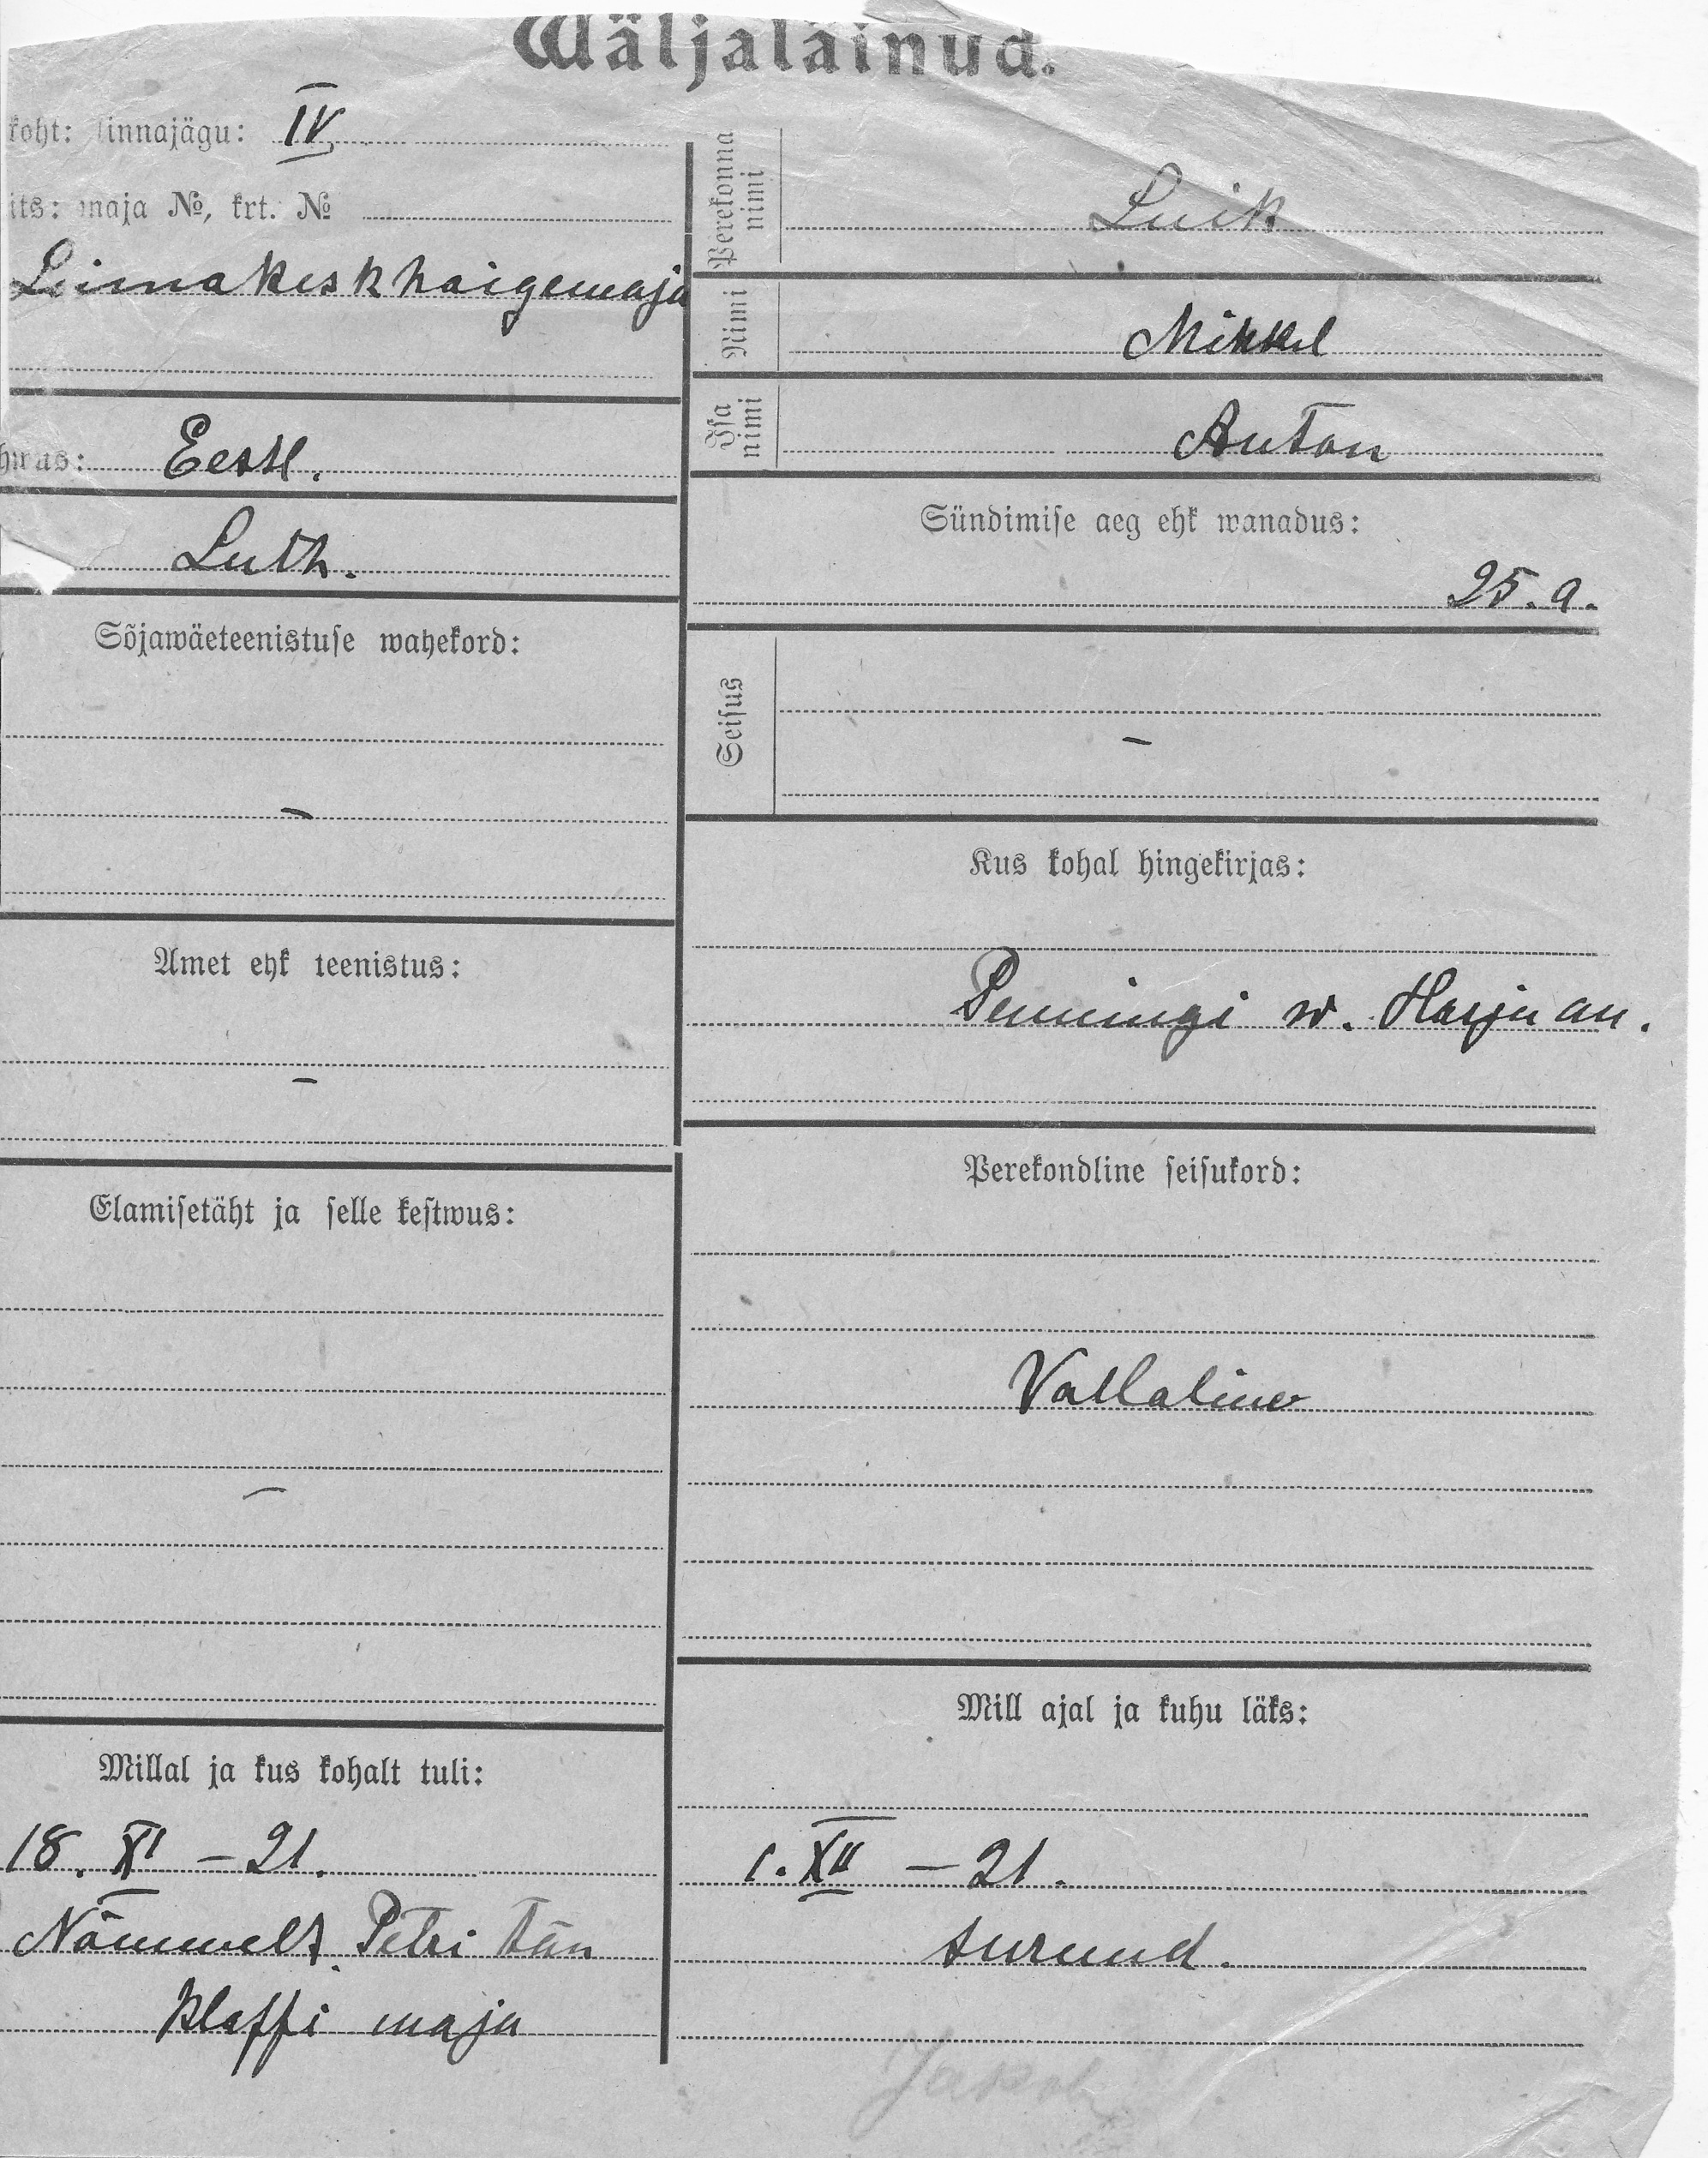 Wäljaläinud.
koht: linnajägu: IV
its: maja №, krt. №
Linnakeskhaigemaja
hwus: Eestl.
Luth.
Sõjawäeteenistuse wahekord:
–
Amet ehk teenistus:
–
Elamisetäht ja selle kestwus:
–
Millal ja kus kohalt tuli:
18. XI – 21.
Nõmmelt, Petri tän
Klaffi maja
Perekonna
nimi
Luik
Nimi
Mihkel
Isa
nimi
Anton
Sündimise aeg ehk wanadus:
25. a.
Seisus
–
Kus kohal hingekirjas:
Penningi w. Harju m.
Perekondline seisukord:
Vallaline
Mill ajal ja kuhu läks:
1. XII – 21.
surnud.
Jakob